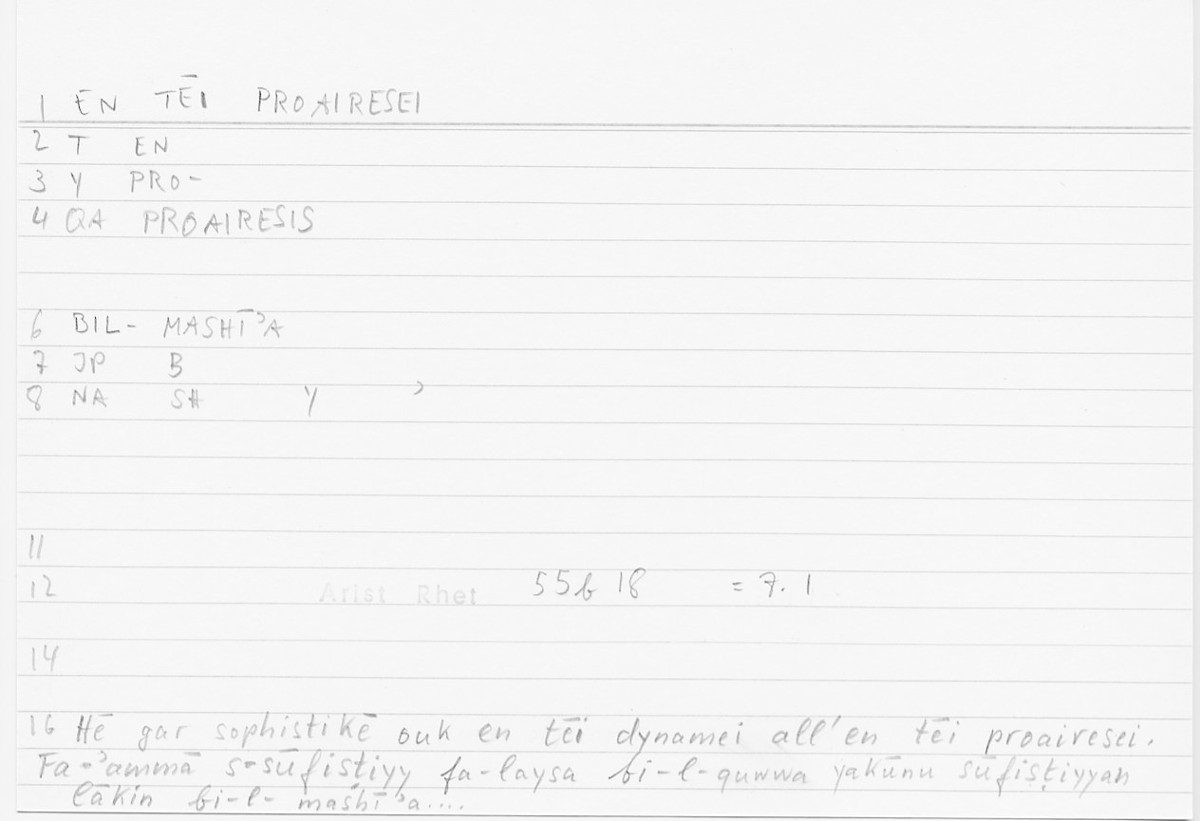 1 EN TĒI PROAIRESEI
2 T EN
3 Y PRO-
4 QA PROAIRESIS
6 BIL- MASHĪʾA
7 JP B
8 NA SH Y ʾ
11
12 Arist Rhet 55b 18 = 7. 1
14
16 Hē gar sophistikē ouk en tēi dynamei all'en tēi proairesei.
Fa-ʾammā s-sūfisṭiyy fa-laysa bi-l-quwwa yakūnu sūfisṭiyyan
lākin bi-l- mashīʾa....